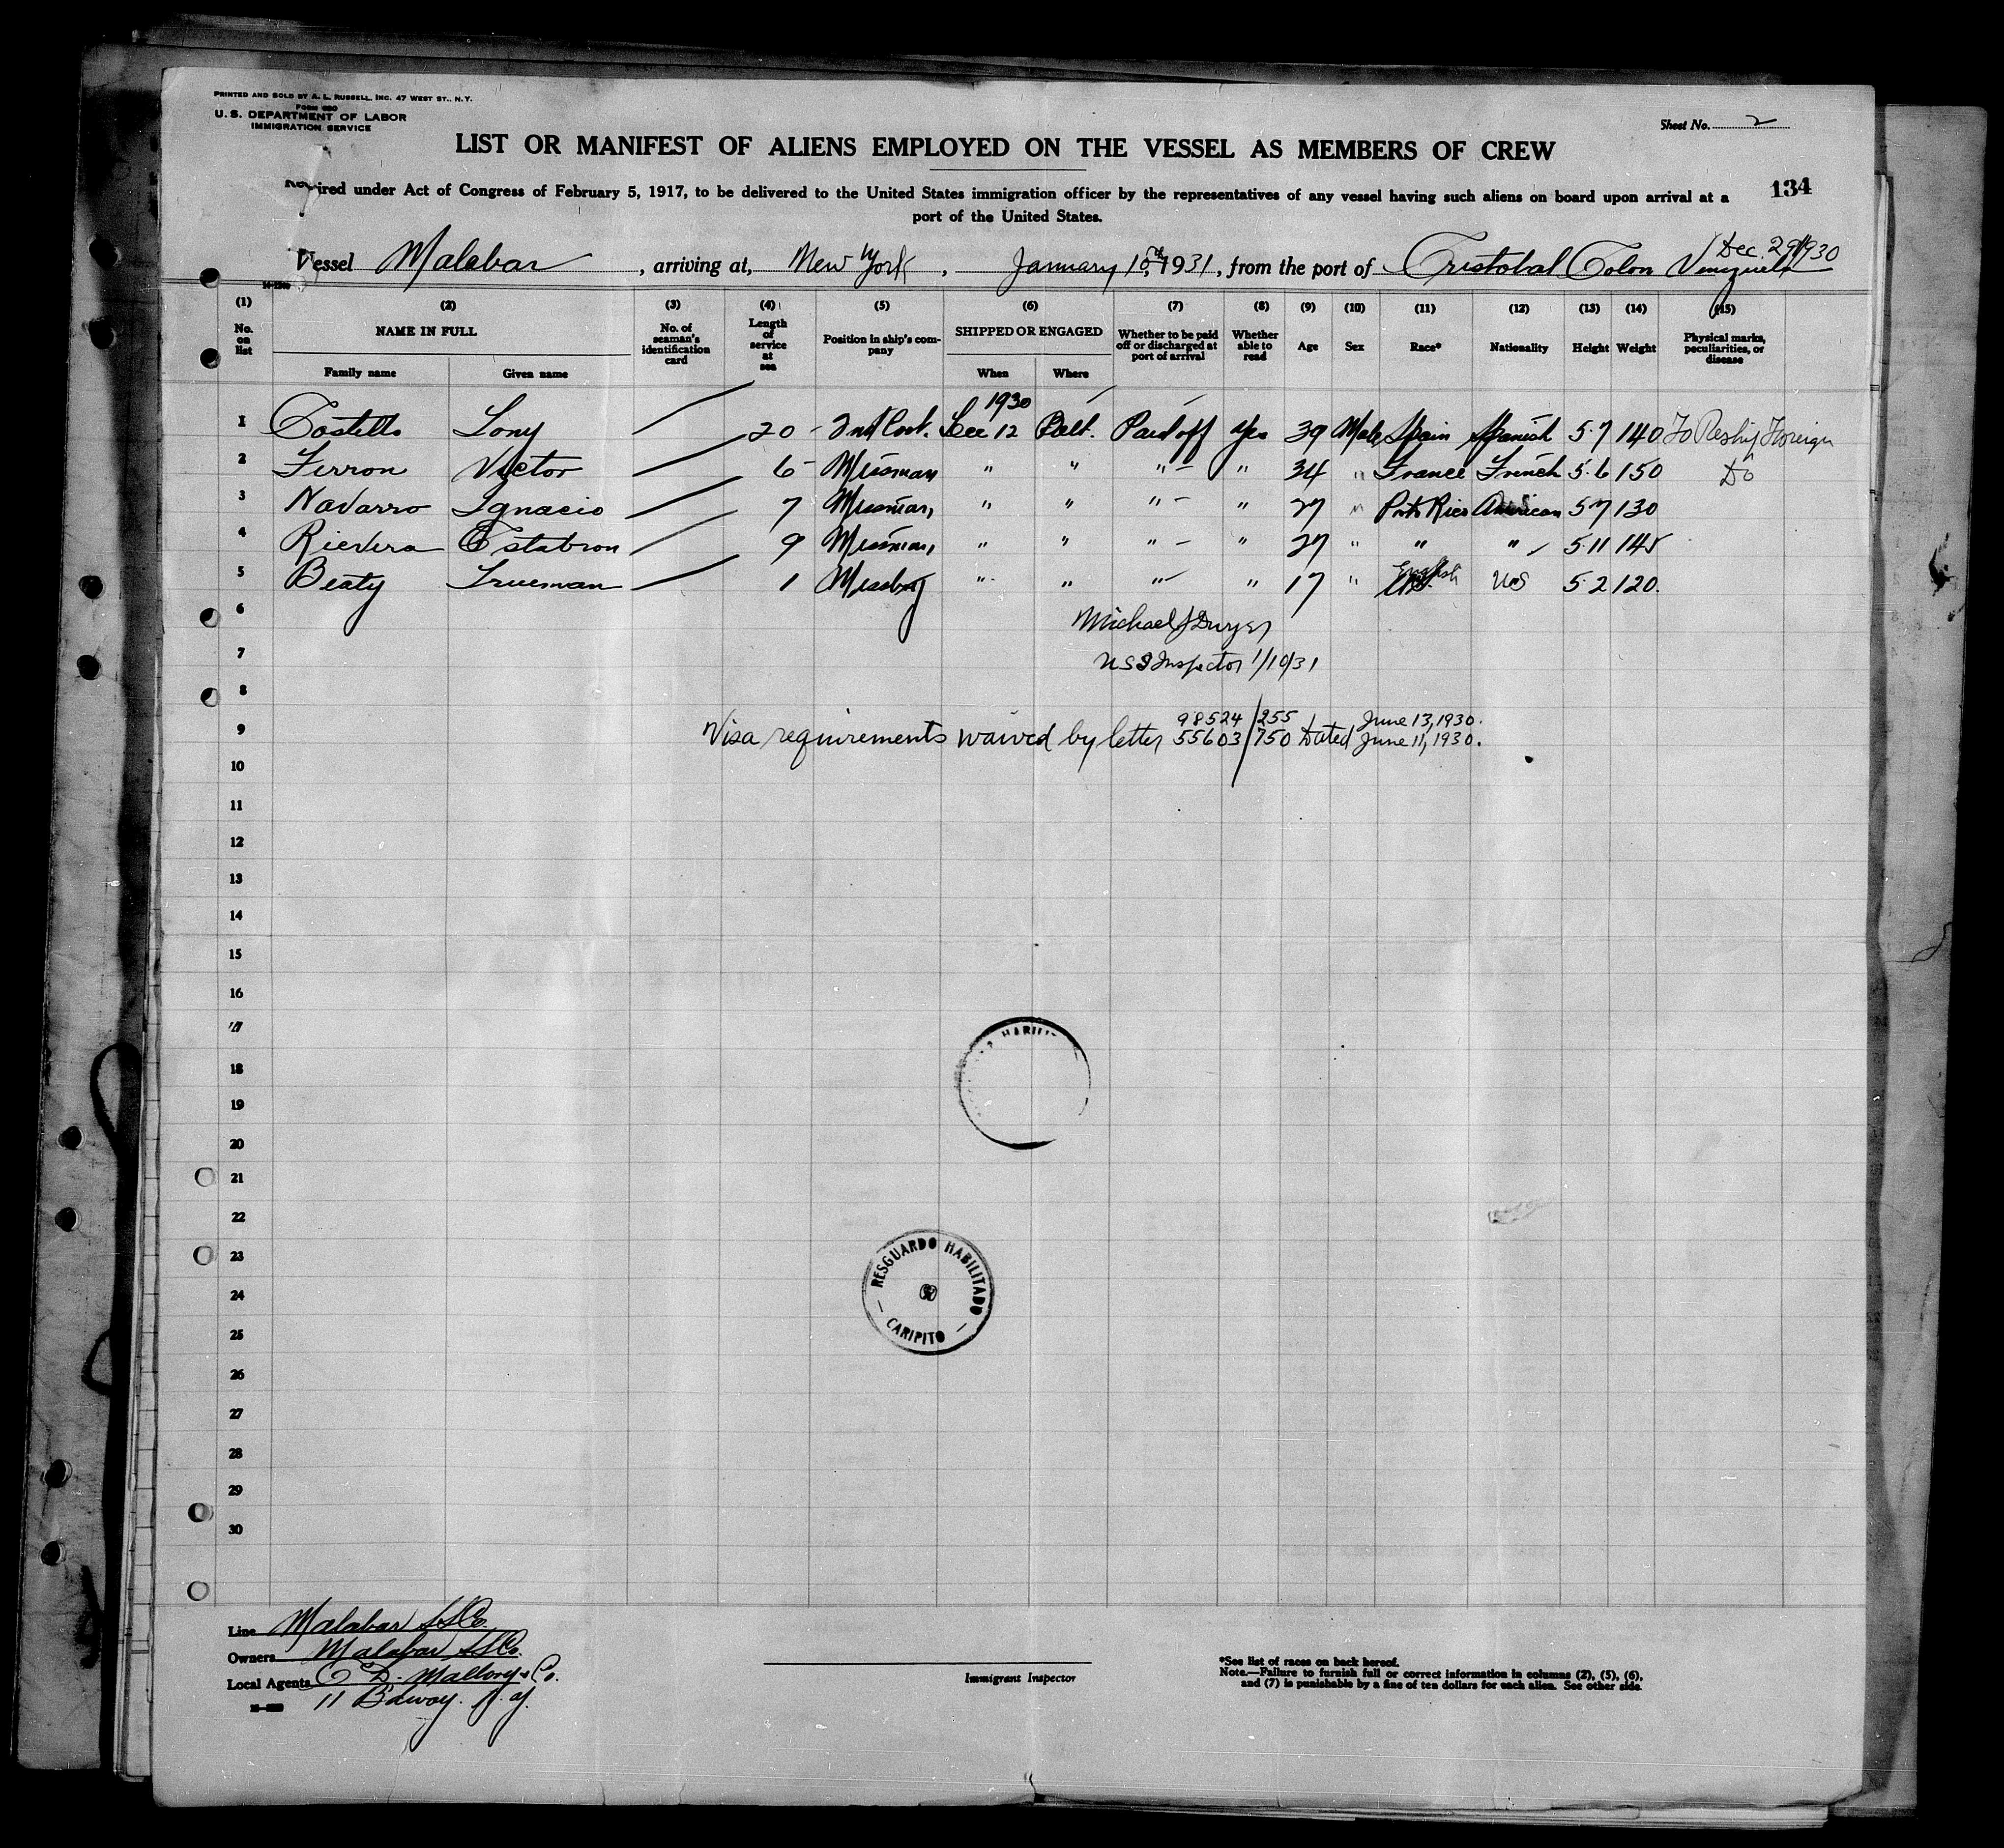 PRINTED AND SOLD BY A. L. RUSSELL, INC. 47 WEST ST., N.Y.
FORM 680
U. S. DEPARTMENT OF LABOR
IMMIGRATION SERVICE
Sheet No. 2
LIST OR MANIFEST OF ALIENS EMPLOYED ON THE VESSEL AS MEMBERS OF CREW
134
ired under Act of Congress of February 5, 1917, to be delivered to the United States immigration officer by the representatives of any vessel having such aliens on board upon arrival at a
port of the United States.
Dec. 29 1930
Vessel Malabar, arriving at, New York, January 10th 1931, from the port of Cristobal Colon Venezuela
(1) (2) (3) (4) (5) (6) (7) (8) (9) (10) (11) (12) (13) (14) (15)
No. on list NAME IN FULL No. of seaman's identification card Length of service at sea Position in ship's company SHIPPED OR ENGAGED Whether to be paid off or discharged at port of arrival Whether able to read Age Sex Race* Nationality Height Weight Physical marks, peculiarities, or disease
Family name Given name When Where
1930
1 Costello Tony 20 2nd Cook. Dec 12 Balt. Paid off Yes 39 Male Spain Spanish 5.7 140 To Reship Foreign
2 Ferron Victor 6 Messman " " " " 34 " France French 5.6 150 Do
3 Navarro Ignacio 7 Messman " " " " 27 " Porto Rico American 5.7 130
4 Rievera Estabron 9 Messman " " " " 27 " " " 5.11 145
5 Beaty Trueman 1 Messboy " " " " 17 " English US 5.2 120.
6 Michael J Dwyer
7 US I Inspector 1/10/31
8
98524/255 June 13, 1930.
9 Visa requirements waived by letter 55603/750 Dated June 11, 1930.
10
11
12
13
14
15
16
17
18
19
20
21
22
23
24
25
26
27
28
29
30
RESGUARDO HABILITADO
CARIPITO
Line Malabar SS Co.
Owners Malabar SS Co.
Local Agents C D. Mallory & Co.
11 Bdway. N.Y.
Immigrant Inspector
*See list of races on back hereof.
Note.—Failure to furnish full or correct information in columns (2), (5), (6),
and (7) is punishable by a fine of ten dollars for each alien. See other side.